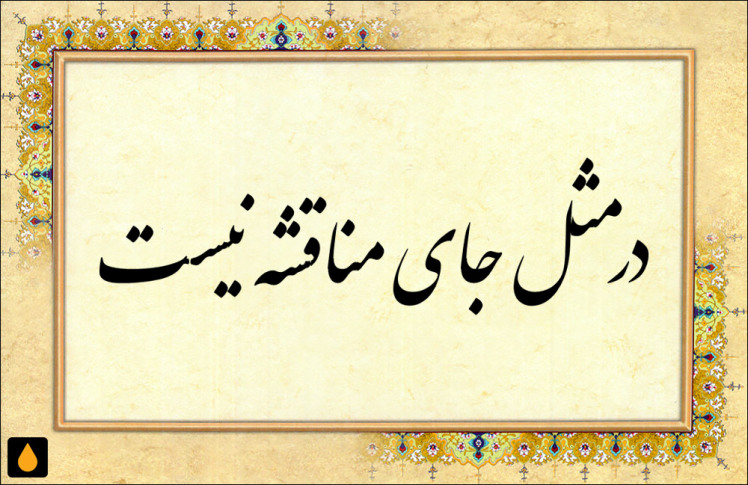 در مثل جای مناقشه نیست